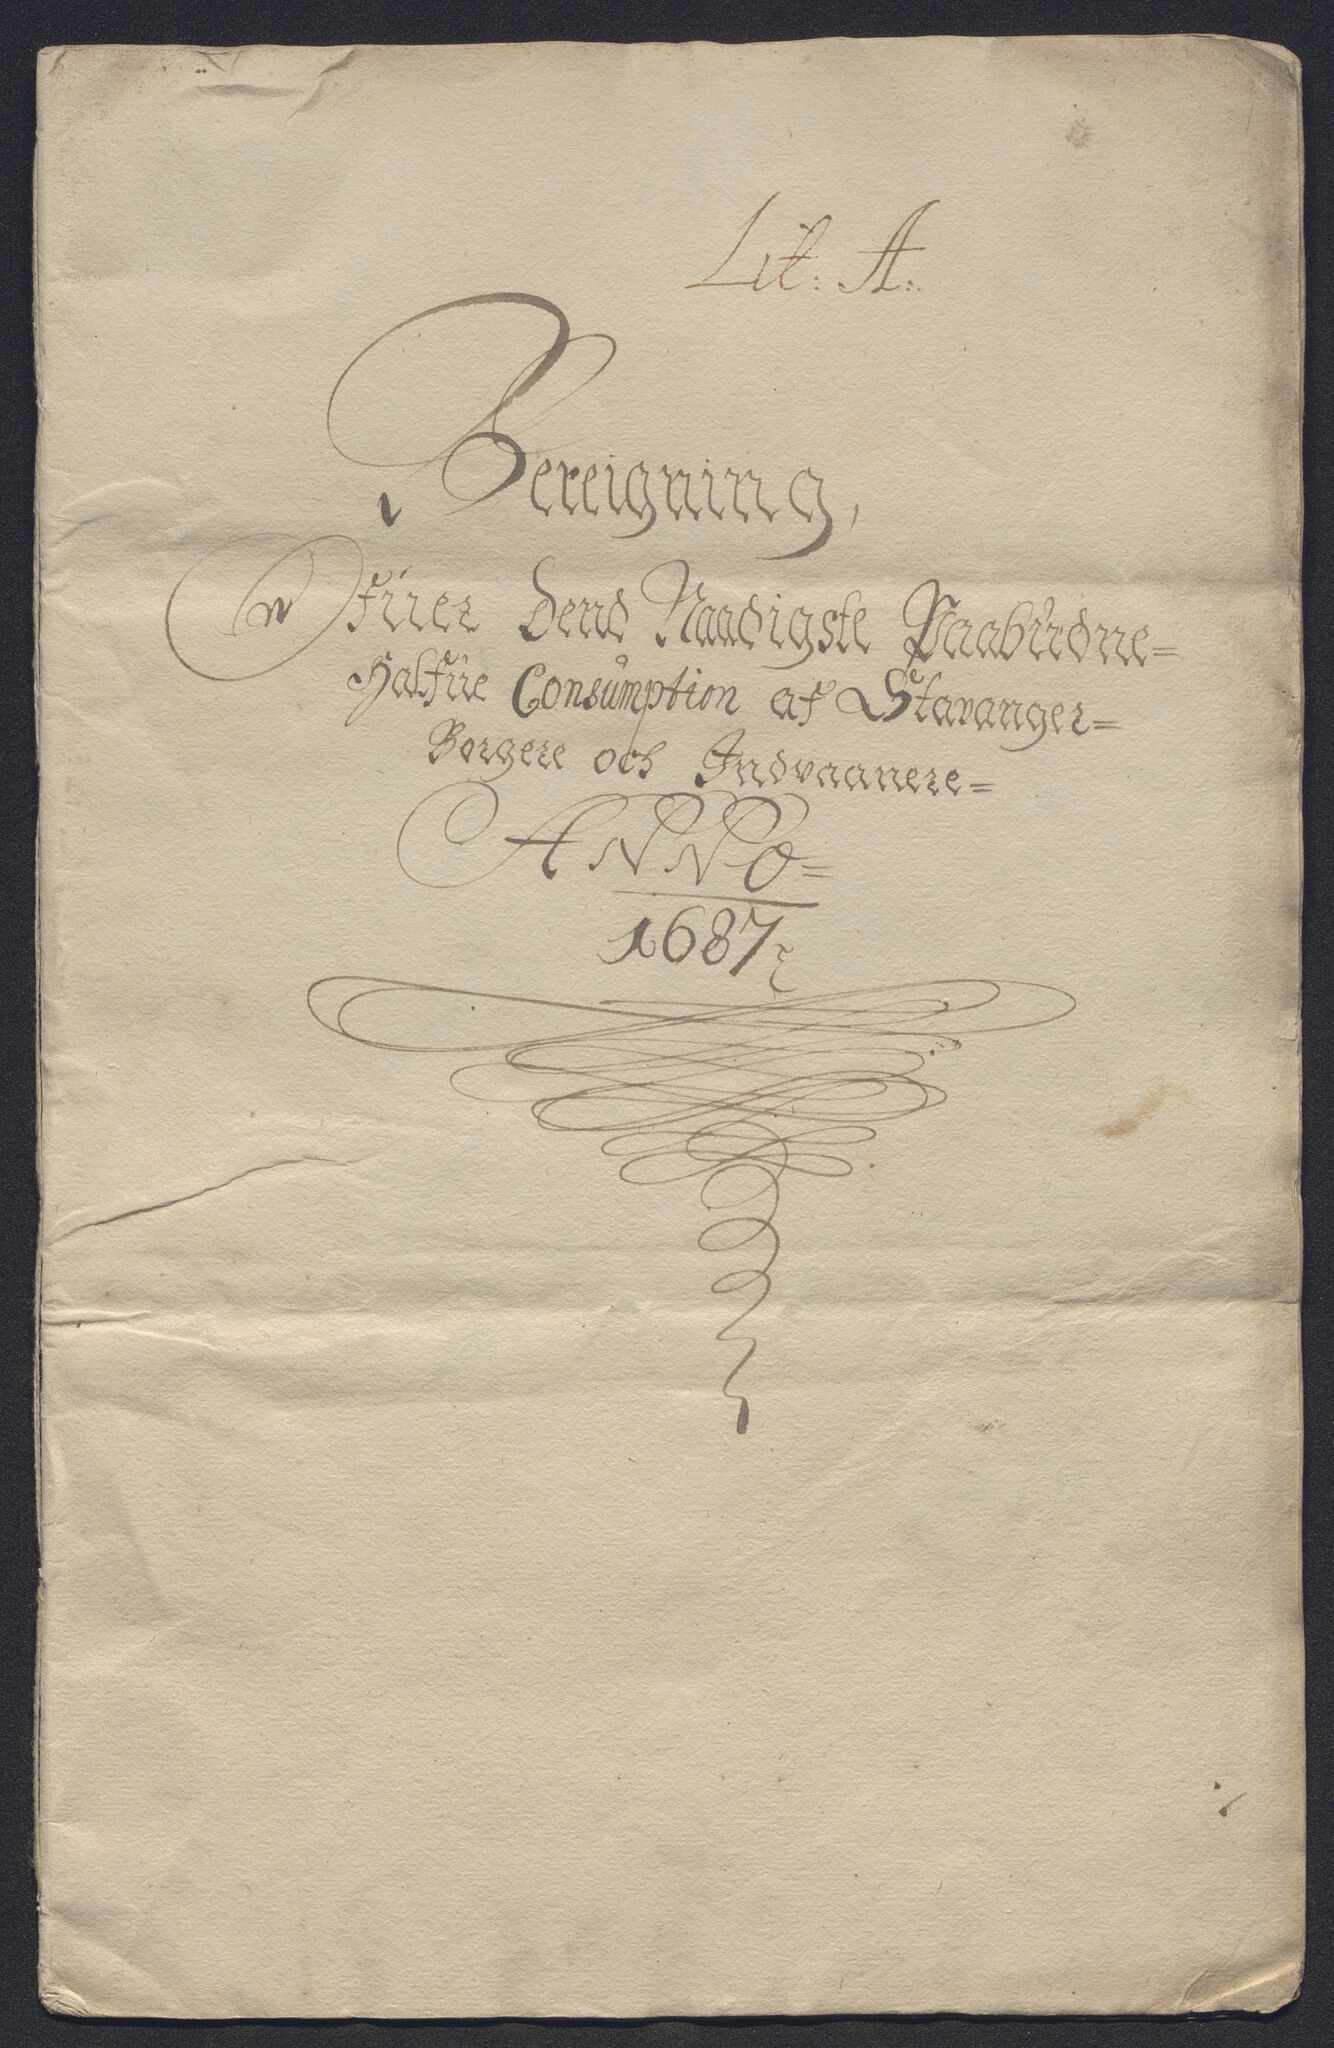 Lit: A:
Bereigning,
Ofuer Dend Naadigste Paabudne=
Halfue Consumption af Stavanger=
Borgere och Indvaanere=
ANNO=
1687